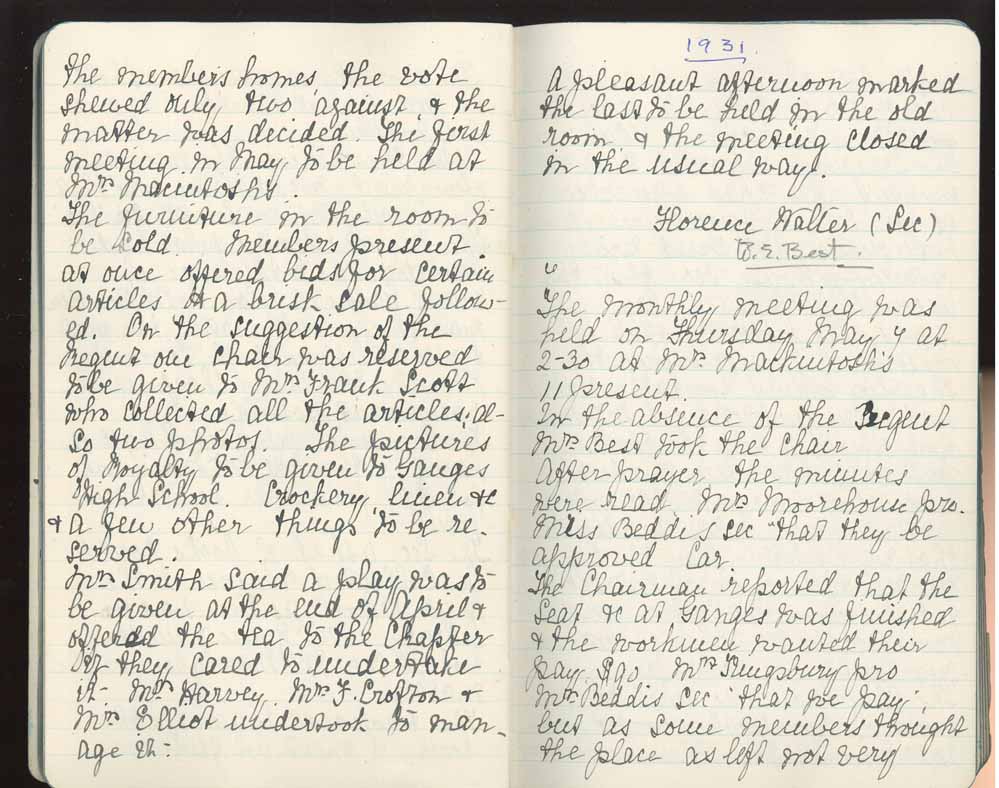 the members homes, the vote
shewed only two against, & the
matter was decided. The first
meeting in May to be held at
Mrs Macintoshs.
The furniture in the room to
be sold. Members present
at once offered bids for certain
articles & a brisk sale follow-
ed. On the suggestion of the
Regent one chair was reserved
to be given to Mrs Frank Scott
who collected all the articles, al-
so two photos. The pictures
of Royalty to be given to Ganges
High School. Crockery, linen &c
& a few other things to be re-
served.
Mrs Smith said a play was to
be given at the end of April &
offered the tea to the Chapter
if they cared to undertake
it. Mrs Harvey, Mrs F. Crofton &
Mrs Elliot undertook to man-
age it.
1931.
A pleasant afternoon marked
the last to be held in the old
room & the meeting closed
in the usual way.
Florence Walter (Sec)
B. E. Best.
The monthly meeting was
held on Thursday May 7 at
2-30 at Mrs Mackintosh's
11 present.
In the absence of the Regent
Mrs Best took the chair
After prayer the minutes
were read. Mrs Moorehouse pro.
Miss Beddis sec "that they be
approved Car.
The Chairman reported that the
Seat &c at Ganges was finished
& the workmen wanted their
pay. $90 Mrs Kingsbury pro
Mrs Beddis sec 'that we pay',
but as some members thought
the place as left not very